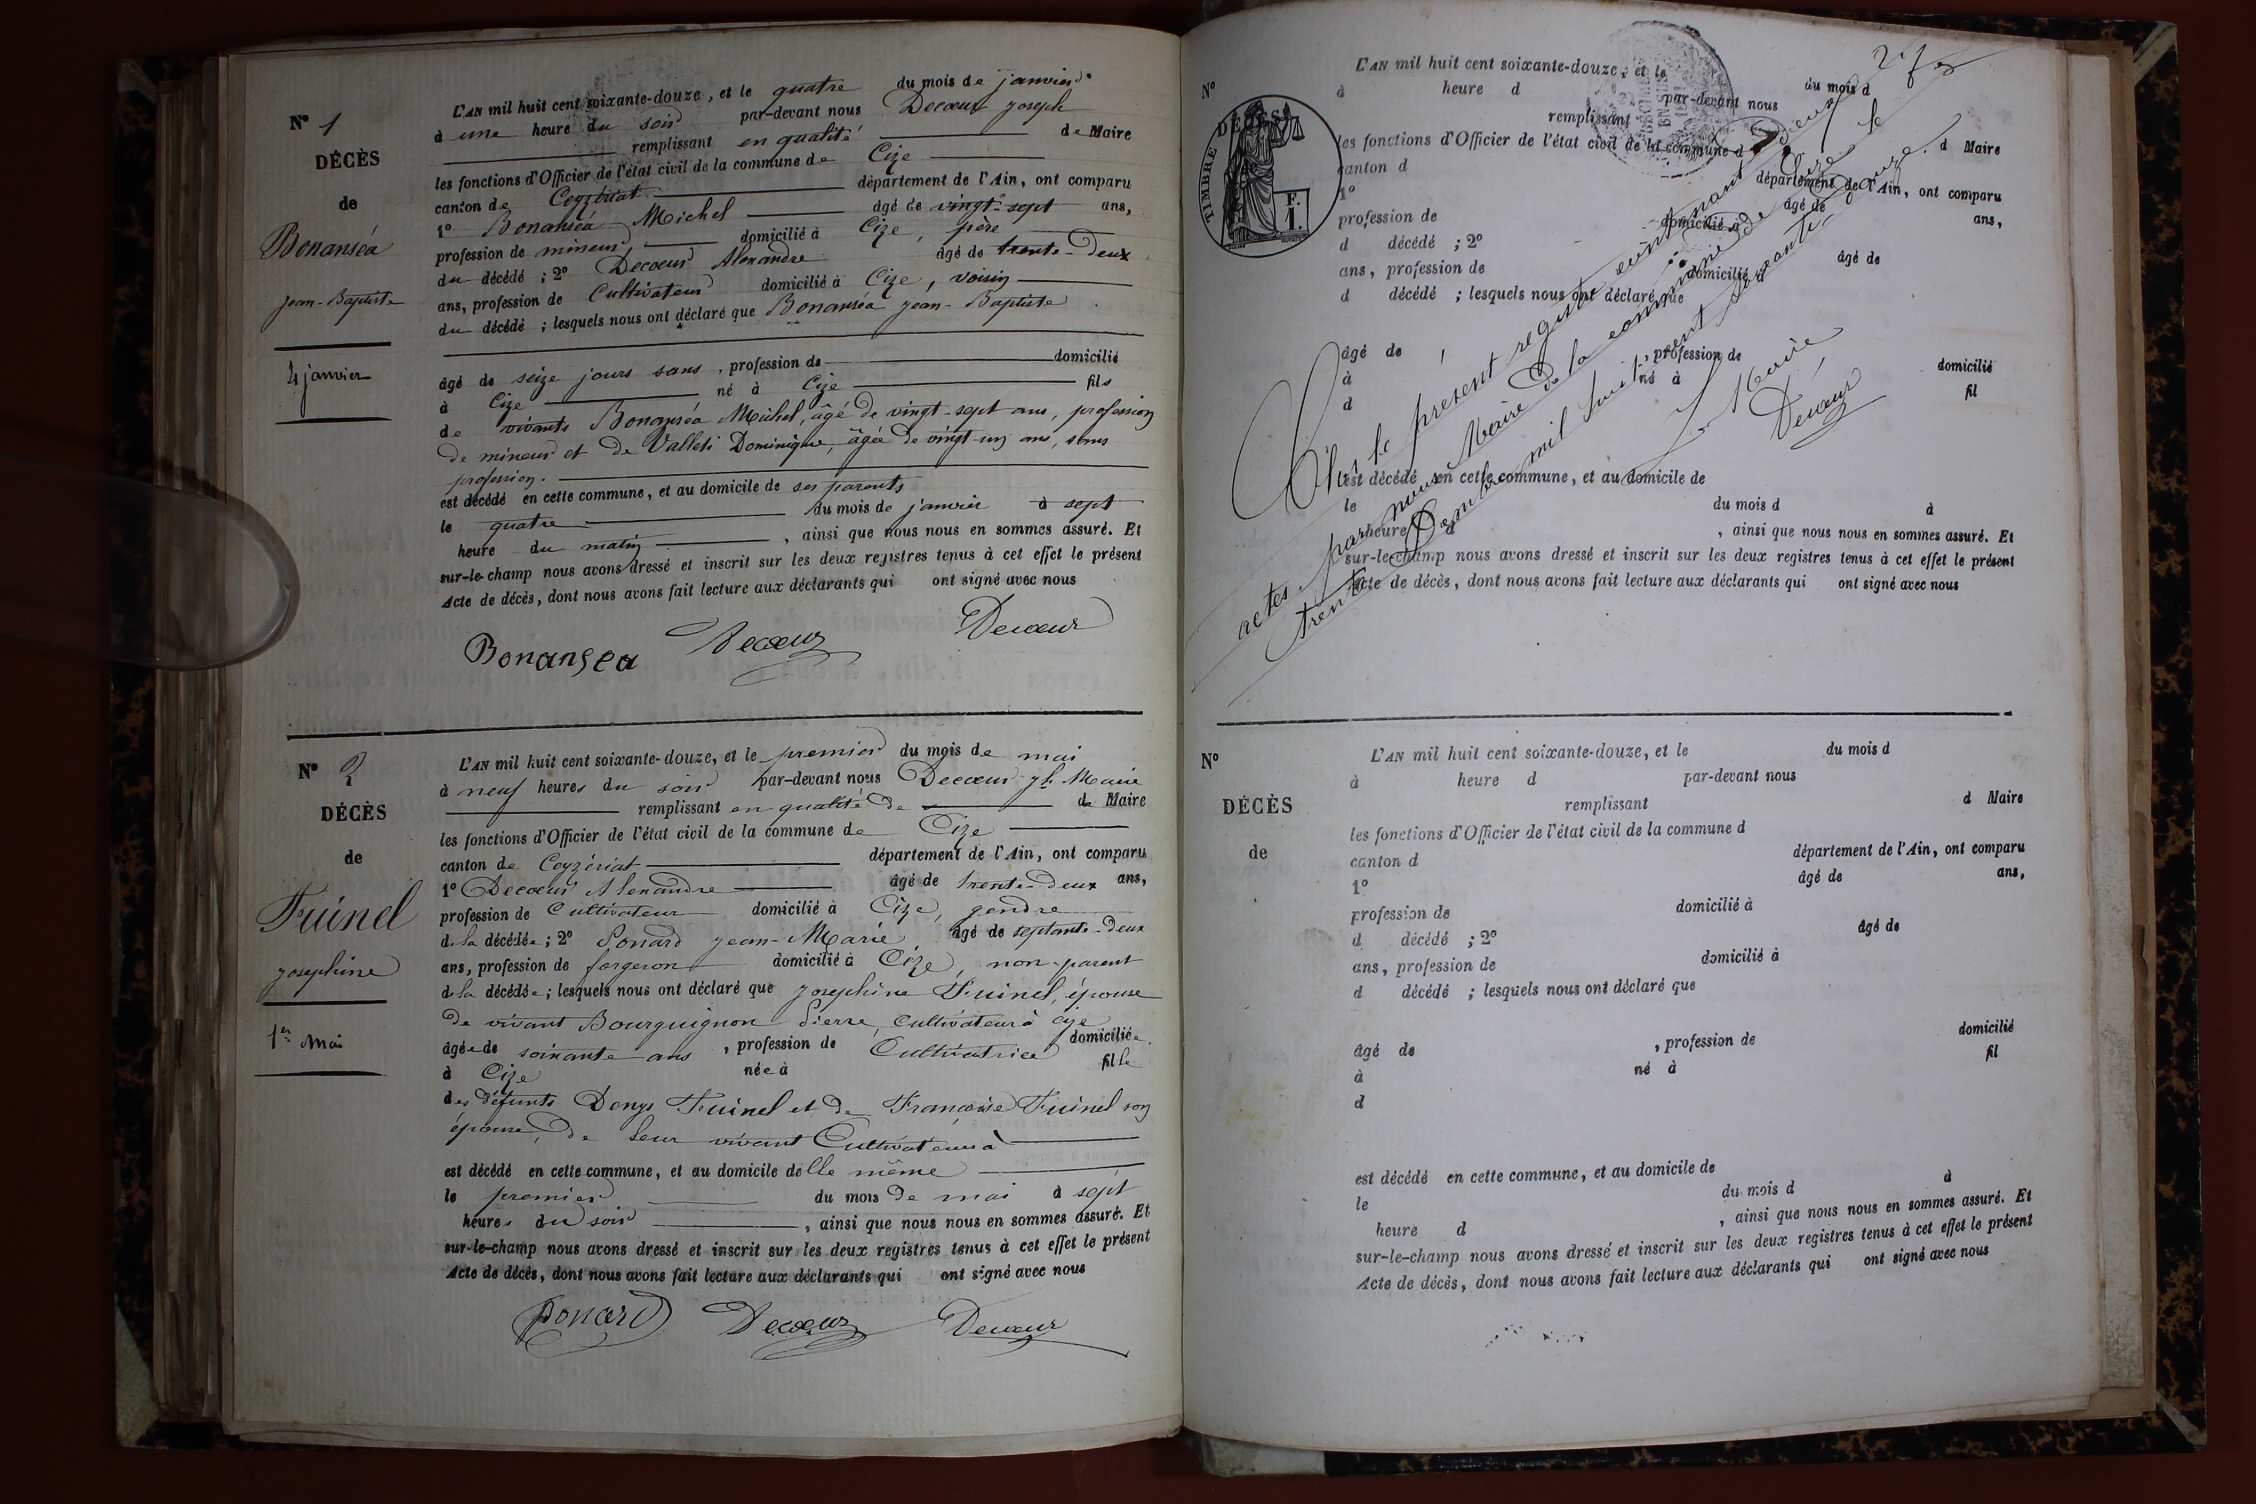 N° 1
DÉCÈS
de
Bonanséa
jean-Baptiste
4 janvier
L'AN mil huit cent soixante-douze, et le quatre du mois de janvier
à une heure du soir par-devant nous Decœur joseph
remplissant en qualité de Maire
les fonctions d'Officier de l'état civil de la commune de Cize
canton de Ceyzériat département de l'Ain, ont comparu
1° Bonanséa Michel âgé de vingt-sept ans,
profession de mineur domicilié à Cize, père
du décédé ; 2° Decoeur Alexandre âgé de trente-deux
ans, profession de Cultivateur domicilié à Cize, voisin
du décédé ; lesquels nous ont déclaré que Bonanséa jean-Baptiste
âgé de seize jours sans, profession de domicilié
à Cize né à Cize fils
de vivants Bonanséa Michel, âgé de vingt-sept ans, profession
de mineur et de Valleti Dominique, âgée de vingt-un ans, sans
profession.
est décédé en cette commune, et au domicile de ses parents
le quatre du mois de janvier à sept
heure du matin, ainsi que nous nous en sommes assuré. Et
sur-le-champ nous avons dressé et inscrit sur les deux registres tenus à cet effet le présent
Acte de décès, dont nous avons fait lecture aux déclarants qui ont signé avec nous
Bonansea Decœur Decœur
N° 2
DÉCÈS
de
Fuinel
josephine
1er Mai
L'AN mil huit cent soixante-douze, et le premier du mois de mai
à neuf heures du soir par-devant nous Decœur jh Maire
remplissant en qualité de de Maire
les fonctions d'Officier de l'état civil de la commune de Cize
canton de Ceyzériat département de l'Ain, ont comparu
1° Decœur Alexandre âgé de trente-deux ans,
profession de Cultivateur domicilié à Cize, gendre
de la décédée ; 2° Ponard jean-Marie âgé de septante-deux
ans, profession de forgeron domicilié à Cize, non parent
de la décédée ; lesquels nous ont déclaré que josephine Fuinel, épouse
de vivant Bourguignon Pierre, Cultivateur à Cize
âgée de soixante ans, profession de Cultivatrice domiciliée
à Cize née à fille
des défunts Denys Fuinel et de Francoise Fuinel son
épouse, de leur vivant Cultivateurs à
est décédé en cette commune, et au domicile delle même
le premier du mois de mai à sept
heures du soir, ainsi que nous nous en sommes assuré. Et
sur-le-champ nous avons dressé et inscrit sur les deux registres tenus à cet effet le présent
Acte de décès, dont nous avons fait lecture aux déclarants qui ont signé avec nous
Ponard Decœur Decœur
N°
TIMBRE DÉCÈS
F. 1.
L'AN mil huit cent soixante-douze, et le du mois d
à heure d par-devant nous
remplissant d Maire
les fonctions d'Officier de l'état civil de la commune d
canton d département de l'Ain, ont comparu
1° âgé de ans,
profession de domicilié à
d décédé ; 2° âgé de
ans, profession de domicilié à
d décédé ; lesquels nous ont déclaré que
âgé de , profession de domicilié
à né à fil
d
est décédé en cette commune, et au domicile de
le du mois d à
heure d , ainsi que nous nous en sommes assuré. Et
sur-le-champ nous avons dressé et inscrit sur les deux registres tenus à cet effet le présent
Acte de décès, dont nous avons fait lecture aux déclarants qui ont signé avec nous
Clos le présent registre contenant deux
actes par nous Maire de la commune de Cize le
trente Décembre mil huit cent soixante douze.
Le Maire
Decœur
N°
DÉCÈS
de
L'AN mil huit cent soixante-douze, et le du mois d
à heure d par-devant nous
remplissant d Maire
les fonctions d'Officier de l'état civil de la commune d
canton d département de l'Ain, ont comparu
1° âgé de ans,
profession de domicilié à
d décédé ; 2° âgé de
ans, profession de domicilié à
d décédé ; lesquels nous ont déclaré que
âgé de , profession de domicilié
à né à fil
d
est décédé en cette commune, et au domicile de
le du mois d à
heure d , ainsi que nous nous en sommes assuré. Et
sur-le-champ nous avons dressé et inscrit sur les deux registres tenus à cet effet le présent
Acte de décès, dont nous avons fait lecture aux déclarants qui ont signé avec nous